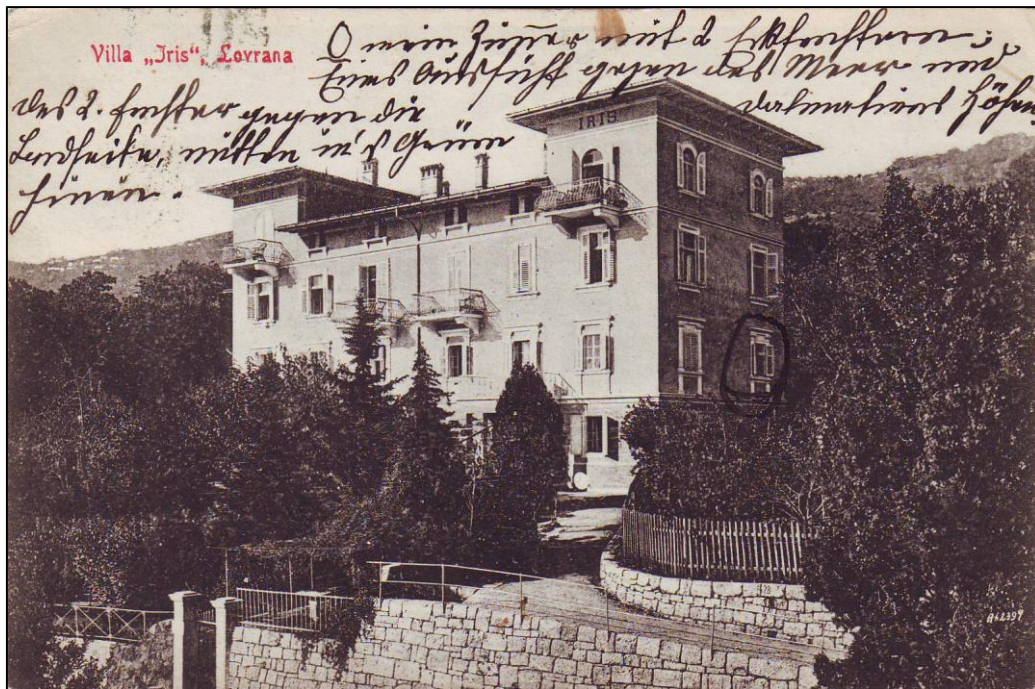 Villa „Iris“, Lovrana
O mein Zimer mit 2 Eckfenstern;
Eines Aussicht gegen das Meer und
dalmatiens Höhen
das 2. Fenster gegen die
Landseite, mitten in's Grüne
hinein.
IRIS